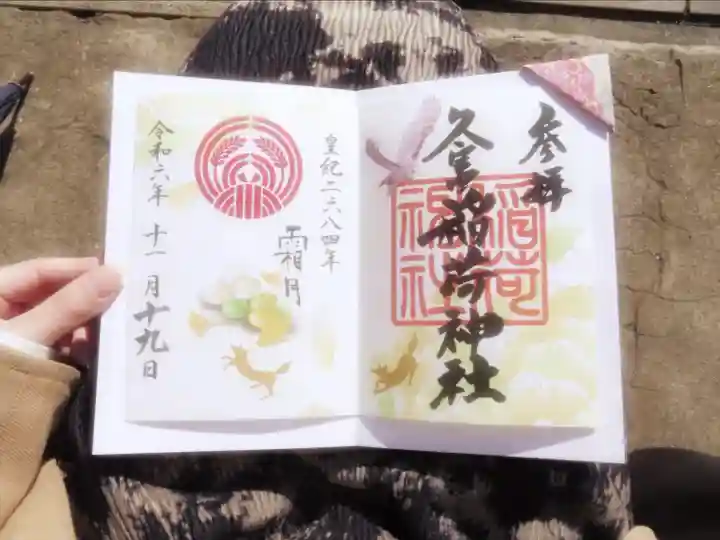 参拝
久富稲荷神社
稲荷
神社
皇紀二六八四年
霜月
令和六年 十一月十九日